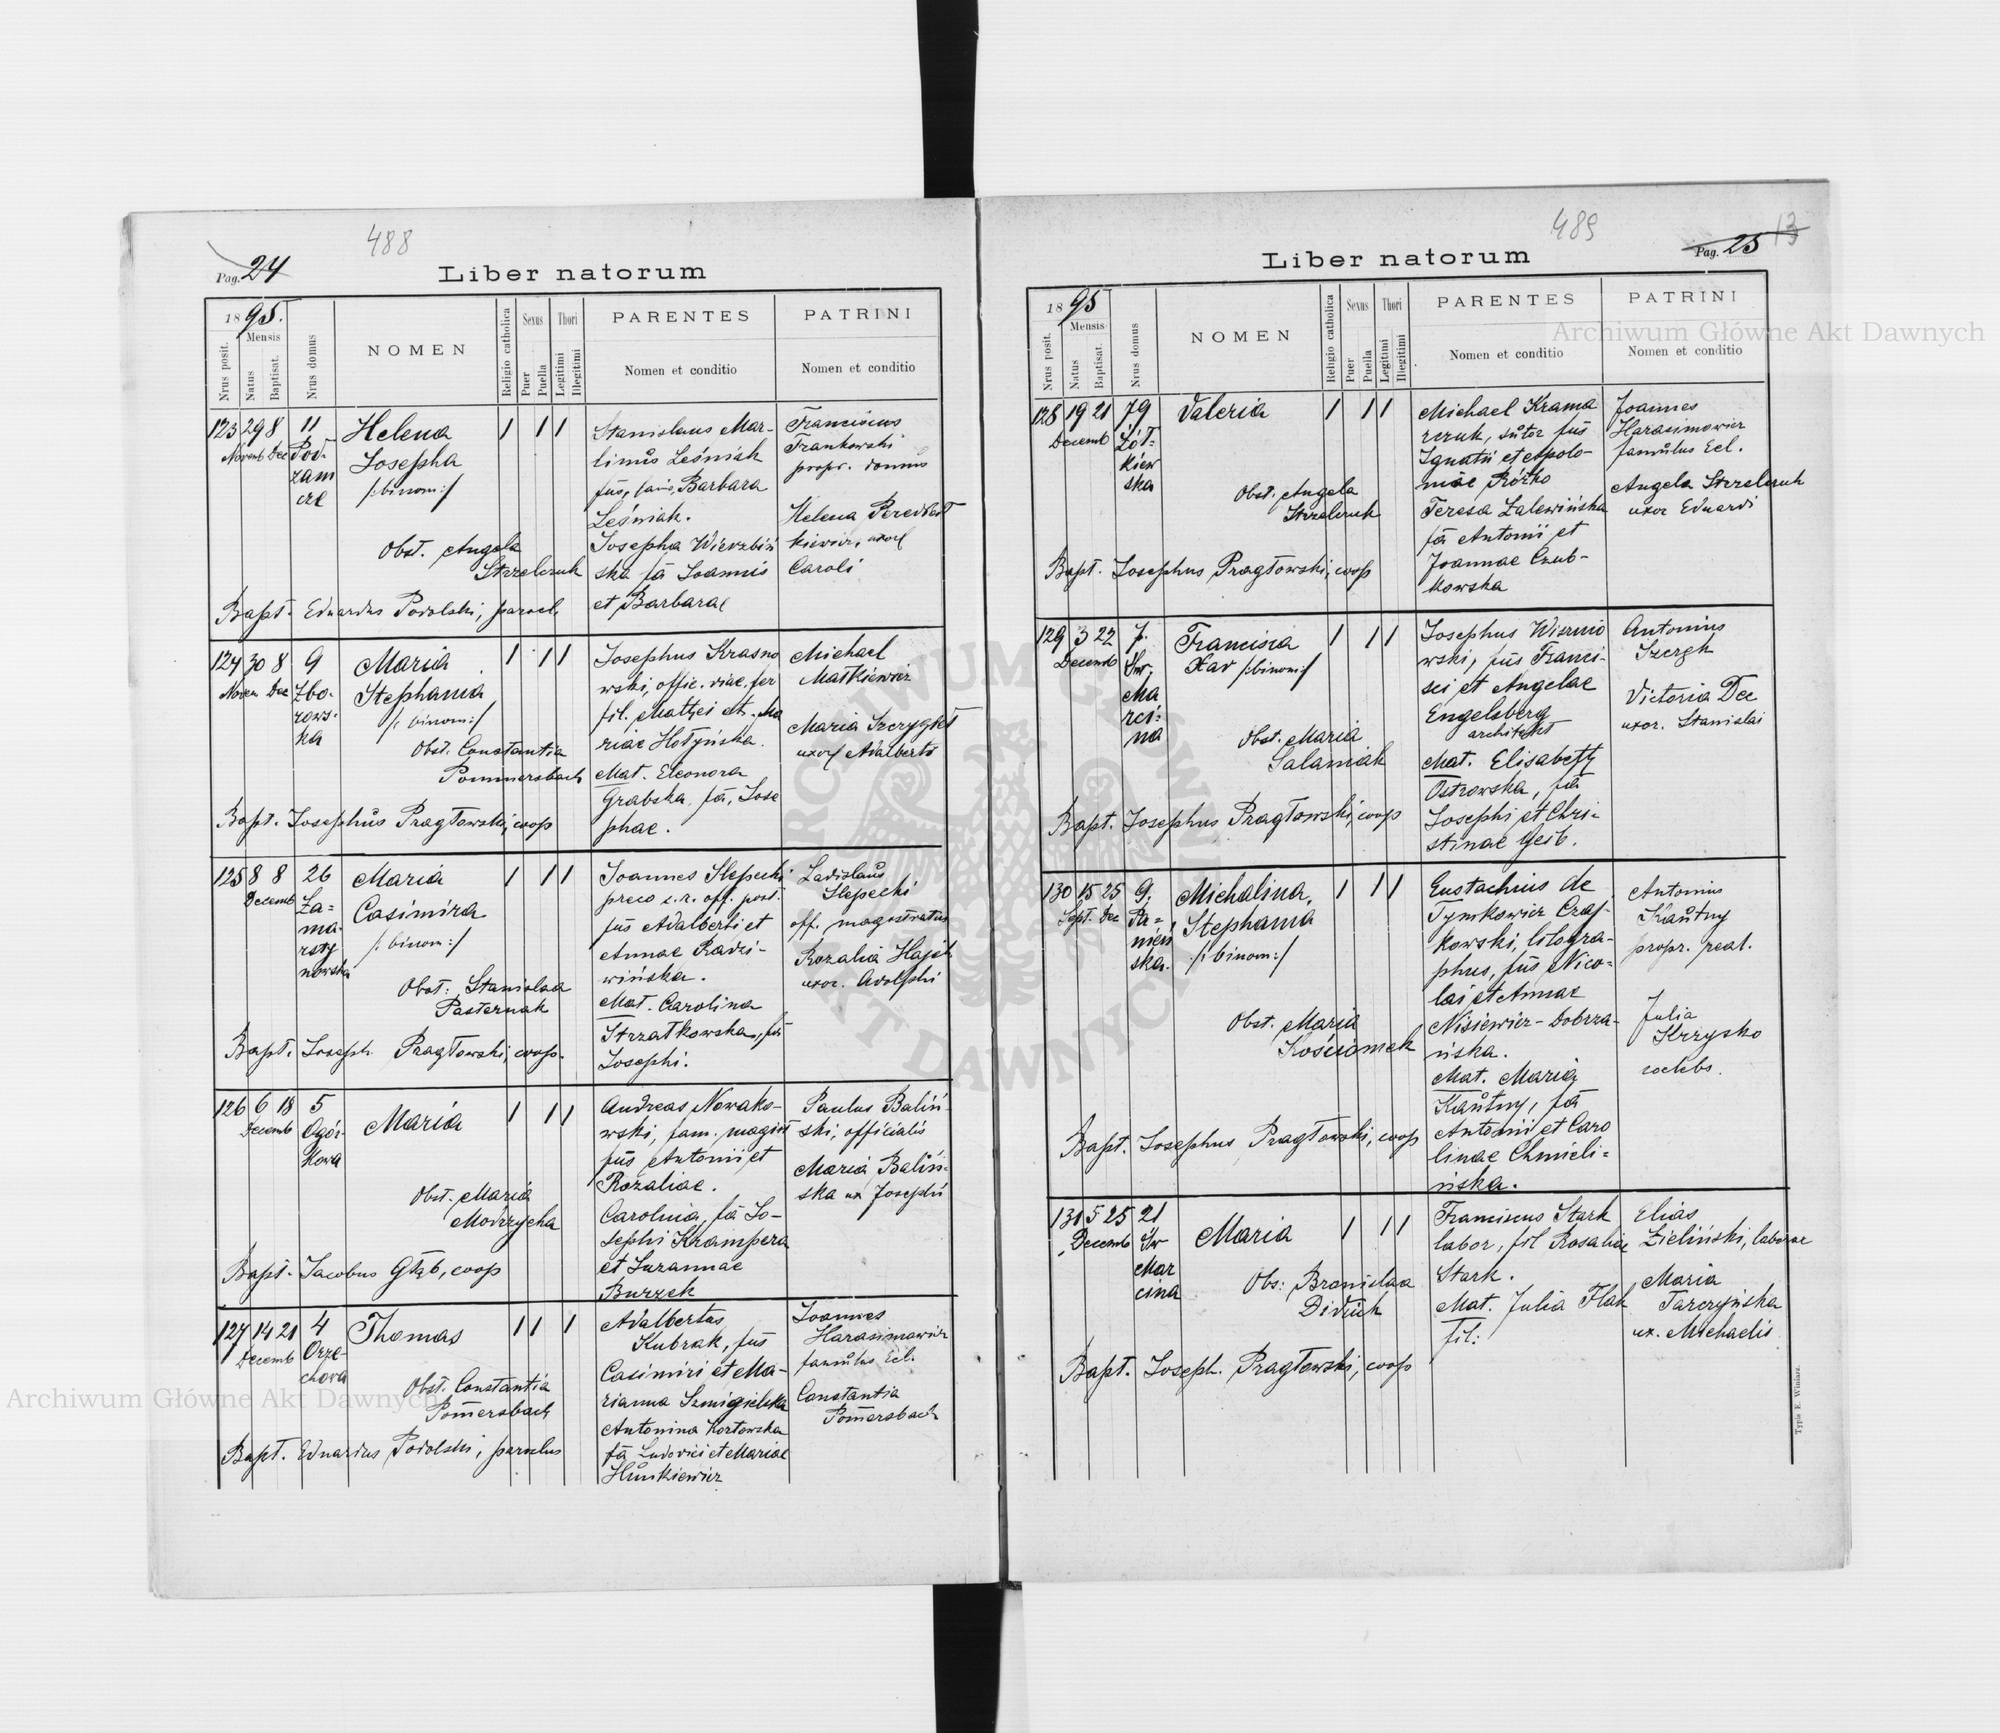 488
Pag. 24
Liber natorum
1895.
Mensis
Nrus posit.
Natus
Baptisat.
Nrus domus
NOMEN
Religio catholica
Sexus
Puer
Puella
Thori
Legitimi
Illegitimi
PARENTES
Nomen et conditio
PATRINI
Nomen et conditio
123 29 8 11
Novemb Dec
Pod-
zam
cze
Helena
Josepha
/:binom:/
1 1 1
Obst. Angela
Strzelczuk
Bapt. Eduardus Podolski, paroch.
Stanislaus Mar-
Leśniak
Barbara
Leśniak.
Josepha Wierzbiń
ska fa Joannis
et Barbarae
Franciscus
Frankowski
propr. domus
Helena
kiewicz, uxor
Caroli
124 30 8 9
Novem Dec
Zbo-
rows-
ka
Maria
Stephania
/: binom:/
1 1 1
Obst. Constantia
Pommersbach
Bapt. Josephus Pragłowski, coop
Josephus Krasno
wski, offic. viae fer
fil. Mathei et Ma
riae Hołyńska.
Mat. Eleonora
Grabska, fa, Jose
phae.
Michael
Matkiewicz
Maria Szczygieł
uxor Adalberti
125 8 8 26
Decemb
Za-
ma-
rsty
nowska
Maria
Casimira
/: binom:/
1 1 1
Obst: Stanislaa
Pasternak
Bapt. Joseph. Pragłowski, coop.
Joannes Slepecki
preco c. r. off. post.
fus Adalberti et
Annae Radzi-
wińska.
Mat. Carolina
Strzałkowska, fa
Josephi.
Ladislaus
Slepecki
off. magistratus
Rozalia
uxor. Adolphi
126 6 18 5
Decemb
Ogór-
kowa
Maria
1 1 1
Obst. Maria
Modrzycha
Bapt. Jacobus Głąb, coop
Andreas Nowako-
wski, fam. magist
fus Antonii et
Rozaliae.
Carolina, fa Jo-
sephi Krampera
et Suzannae
Burzek
Paulus Baliń-
ski, officialis
Maria Baliń-
ska ux Josephi
127 14 21 4
Decemb
Orze-
chowa
Thomas
1 1 1
Obst. Constantia
Pomersbach
Bapt. Eduardus Podolski, parochus
Adalbertus
Kubrak, fus
Casimiri et Ma-
rianna Szmigielska
Antonina Kozłowska
fa Ludovici et Mariae
Hunkiewicz
Joannes
Harasimowicz
famulus Ecl.
Constantia
Pomersbach
489
13
Pag. 25
Liber natorum
1895
Mensis
Nrus posit.
Natus
Baptisat.
Nrus domus
NOMEN
Religio catholica
Sexus
Puer
Puella
Thori
Legitimi
Illegitimi
PARENTES
Nomen et conditio
PATRINI
Nomen et conditio
128 19 21 79
Decemb
Żół-
kiew
ska
Valeria
1 1 1
Obst. Angela
Strzelczuk
Bapt. Josephus Pragłowski, coop
Michael Krama
rczuk, sutor fus
Ignatii et Apolo-
niae Różko
Teresa Zalewińska
fa Antonii et
Joannae Czub-
kowska
Joannes
Harasimowicz
famulus Ecl.
Angela Strzelczuk
uxor Eduardi
129 3 22 7.
Decemb
Św.
Ma
rci-
na
Francisca
Xav /:binom:/
1 1 1
Obst. Maria
Salamiak
Bapt. Josephus Pragłowski, coop
Josephus Wisznio
wski, fus Franci-
sci et Angelae
Engelsberg
architekt
Mat. Elisabeth
Ostrowska, fa
Josephi et Chri-
stinae Geib.
Antonius
Szergh
Victoria Dec
uxor. Stanislai
130 15 25 9.
Sept. Dec
Pa-
nień
ska.
Michalina,
Stephania
/:binom:/
1 1 1
Obst. Maria
Kościomek
Bapt. Josephus Pragłowski, coop
Eustachius de
Tymkowicz Czaj-
kowski, litogra-
phus, fus Nico-
lai et Annae
Nisiewicz-Dobrza-
ńska.
Mat. Maria
Kautny, fa
Antonii et Caro
linae Chmieli-
ńska.
Antonius
Kautny
propr. real.
Julia
Krzysko
coelebs.
131 5 25 21
Decemb
Św
Mar
cina
Maria
1 1 1
Obs: Bronislaa
Didiuk
Bapt. Joseph. Pragłowski, coop
Franciscus Stark
labor, fil Rosaliae
Stark.
Mat. Julia Flak
fil:
Elias
Zieliński, laborac
Maria
Tarczyńska
ux. Michaelis
Typis E. Winiarz.
Archiwum Główne Akt Dawnych
Archiwum Główne Akt Dawnych
ARCHIWUM GŁÓWNE AKT DAWNYCH